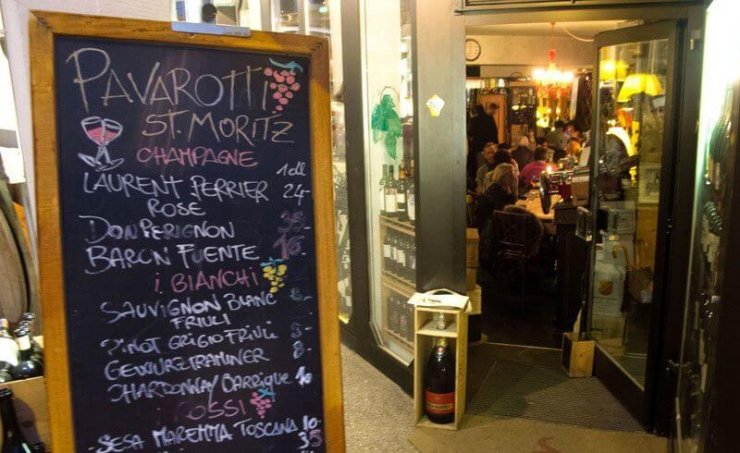 PAVAROTTI
ST. MORITZ
CHAMPAGNE
1dl
LAURENT PERRIER 24-
ROSE
DON PERIGNON 35-
BARON FUENTE 15-
i BIANCHI
SAUVIGNON BLANC
FRIULI
PINOT GRIGIO FRIULI
GEWÜRZTRAMINER 8-
CHARDONNAY BARRIQUE 10
ROSSI
SESA MAREMMA TOSCANA 10
35